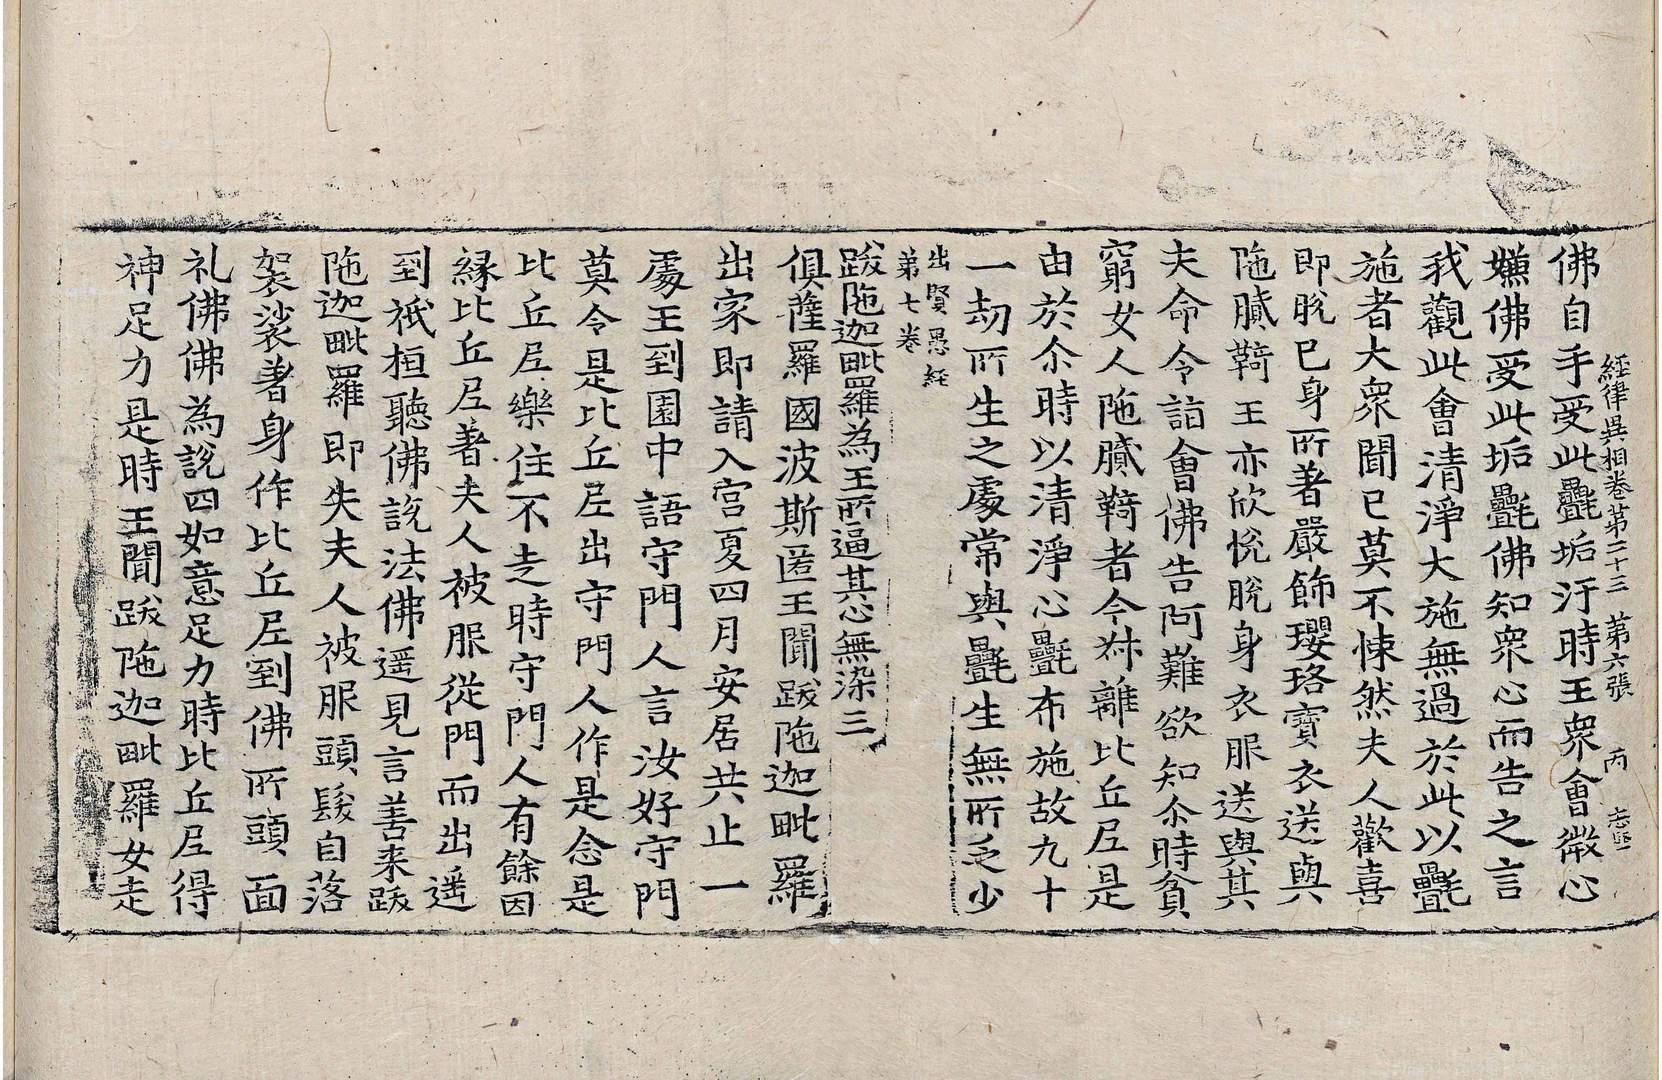 經律異相卷第二十三 第六張 丙
佛自手受此㲲垢汙時王衆會微心
嫌佛受此垢㲲佛知衆心而告之言
我觀此會清淨大施無過於此以㲲
施者大衆聞已莫不悚然夫人歡喜
即脫已身所著嚴飾瓔珞寶衣送與
陁膩䩭王亦欣悅脫身衣服送與其
夫命令詣會佛告阿難欲知尒時貧
窮女人陁膩䩭者今叔離比丘尼是
由於尒時以清淨心㲲布施故九十
一劫所生之處常與㲲生無所乏少
出賢愚經
第七卷
跋陁迦毗羅為王所逼其心無染三
俱薩羅國波斯匿王聞跋陁迦毗羅
出家即請入宮夏四月安居共止一
處王到園中語守門人言汝好守門
莫令是比丘尼出守門人作是念是
比丘尼樂住不走時守門人有餘因
緣比丘尼著夫人被服從門而出遥
到祇桓聽佛說法佛遥見言善来跋
陁迦毗羅即失夫人被服頭髮自落
袈裟著身作比丘尼到佛所頭面
礼佛佛為說四如意足力時比丘尼得
神足力是時王聞跋陁迦毗羅女走